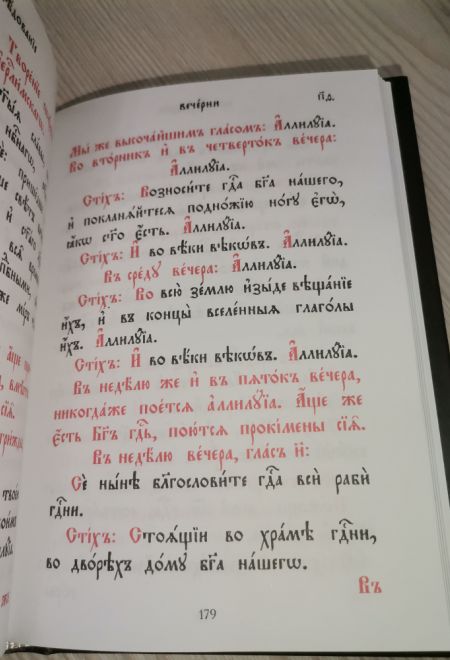 вече́рни
Мы́ же высоча́йшимъ гла́сомъ: А҆ллилꙋ́їа.
Во вто́рникъ и҆ въ четверто́къ ве́чера:
А҆ллилꙋ́їа.
Сті́хъ: Возноси́те гдⷭ҇а бг҃а на́шего,
и҆ покланѧ́йтесѧ подно́жїю но́гꙋ є҆гѡ̀,
ꙗ҆́кѡ ст҃о є҆́сть. А҆ллилꙋ́їа.
Сті́хъ: И҆ во вѣ́ки вѣкѡ́въ. А҆ллилꙋ́їа.
Въ сре́дꙋ ве́чера: А҆ллилꙋ́їа.
Сті́хъ: Во всю̀ зе́млю и҆зы́де вѣща́нїе
и҆́хъ, и҆ въ концы̀ вселе́нныѧ глаго́лы
и҆́хъ. А҆ллилꙋ́їа.
Сті́хъ: И҆ во вѣ́ки вѣкѡ́въ. А҆ллилꙋ́їа.
Въ недѣ́лю же и҆ въ пѧто́къ ве́чера,
никогда́же пое́тсѧ а҆ллилꙋ́їа. А҆́ще же
є҆́сть Бг҃ъ гдⷭ҇ь, пою́тсѧ прокі́мены сїѧ̑.
Въ недѣ́лю ве́чера, гла́съ и҃:
Сѐ ны́нѣ благослови́те гдⷭ҇а всѝ рабѝ
гдⷭ҇ни.
Сті́хъ: Стоѧ́щїи во хра́мѣ гдⷭ҇ни,
во дво́рѣхъ до́мꙋ бг҃а на́шегѡ.
Въ
179